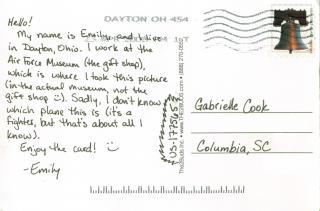 Hello!
My name is Emily and I live
in Dayton, Ohio. I work at the
Air Force Museum (the gift shop),
which is where I took this picture
(in the actual museum, not the
gift shop :)). Sadly, I don't know
which plane this is (it's a
fighter, but that's about all I
know).
Enjoy the card! :)
-Emily
DAYTON OH 454
US-1775653
Gabrielle Cook
Columbia, SC